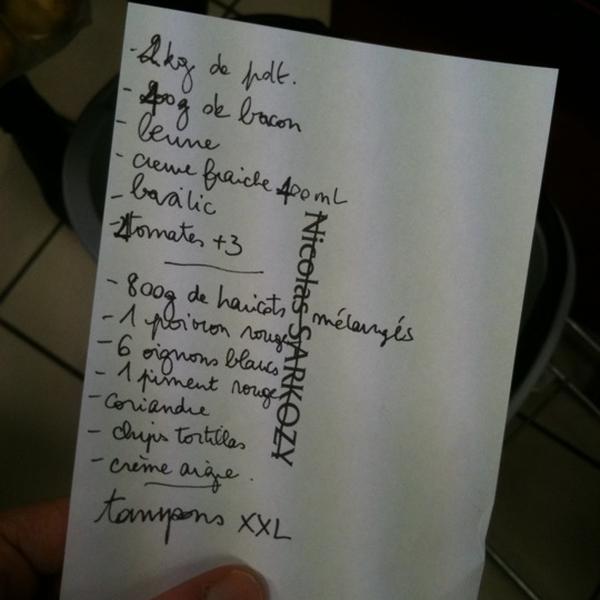 - 2kg de pdt.
- 200g de bacon
- beurre
- creme fraiche 400mL
- basilic
- tomates +3
- 800g de haricots mélangés
- 1 poivron rouge
- 6 oignons blancs
- 1 piment rouge
- coriandre
- chips tortillas
- crème aigre.
tampons XXL
Nicolas SARKOZY